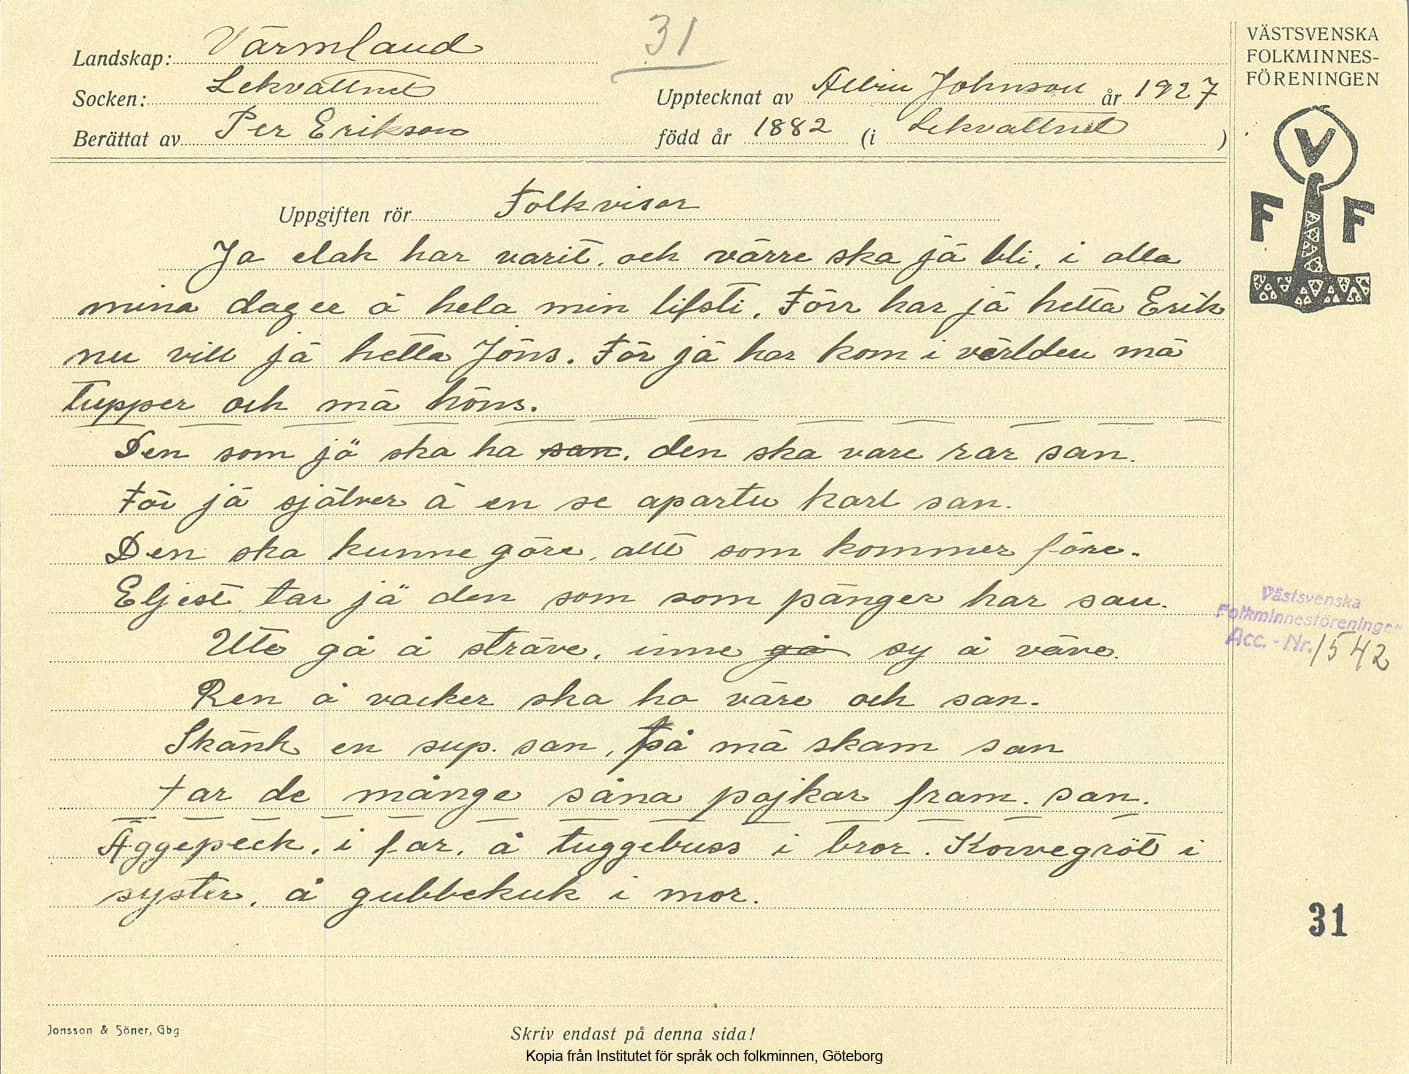 31
Landskap: Värmland
Socken: Lekvattnet
Berättat av Per Erikson
Upptecknat av Albin Johnson år 1927
född år 1882 (i Lekvattnet )
VÄSTSVENSKA
FOLKMINNES-
FÖRENINGEN
V
F F
Uppgiften rör Folkvisor
Ja elak har varit. och värre ska jä bli. i alla
mina dager å hela min lifsti. Förr har jä hetta Erik
nu vill jä hetta Jöns. För jä har kom i världen mä
tupper och mä höns.
Den som jä ska ha san. den ska vare rar san.
För jä själver ä en se apartu karl san.
Den ska kunne göre, allt som kommer före.
Eljest tar jä den som som pänger har san.
Ute gå å sträve. inne gå sy å väve.
Ren å vacker ska ho väre och san.
Skänk en sup. san, på mä skam san
tar de månge såna pojkar fram. san.
Äggepeck. i far. å tuggebuss i bror. Korvegröt i
syster. å gubbekuk i mor.
Västsvenska
Folkminnesföreningen
Acc. - Nr. 1542
31
Jonsson & Söner, Gbg
Skriv endast på denna sida!
Kopia från Institutet för språk och folkminnen, Göteborg